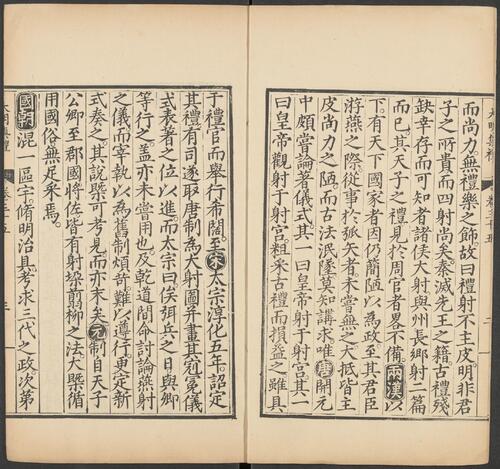 而尚力無禮樂之飾故曰禮射不主皮明非君
子之所貴而四射尚矣秦滅先王之籍古禮殘
缺幸存而可知者諸侯大射與州長鄉射二篇
而已其天子之禮見於周官者畧不備兩漢以
下有天下國家者因仍簡陋以為政至其君臣
游燕之際從事於弧矢者未嘗無之大抵皆主
皮尚力之陋而古法泯墜莫知講求唯唐開元
中頗嘗論著儀式其一曰皇帝射于射宮其一
曰皇帝觀射于射宮粗采古禮而損益之雖具
于禮官而舉行希闊至宋太宗淳化五年詔定
其禮有司遂取唐制為大射圖并畫其冠冕儀
式表著之位以進而太宗曰俟弭兵之日與卿
等行之盖亦未嘗用也及乾道間命討論燕射
之儀而宰執以為舊制煩苛難以遵行更定新
式奏之其說槩可考見而亦末矣元制自天子
公卿至郡國將佐皆有射垜翦柳之法大槩循
用國俗無足采焉
國朝混一區宇脩明治具考求三代之政次第